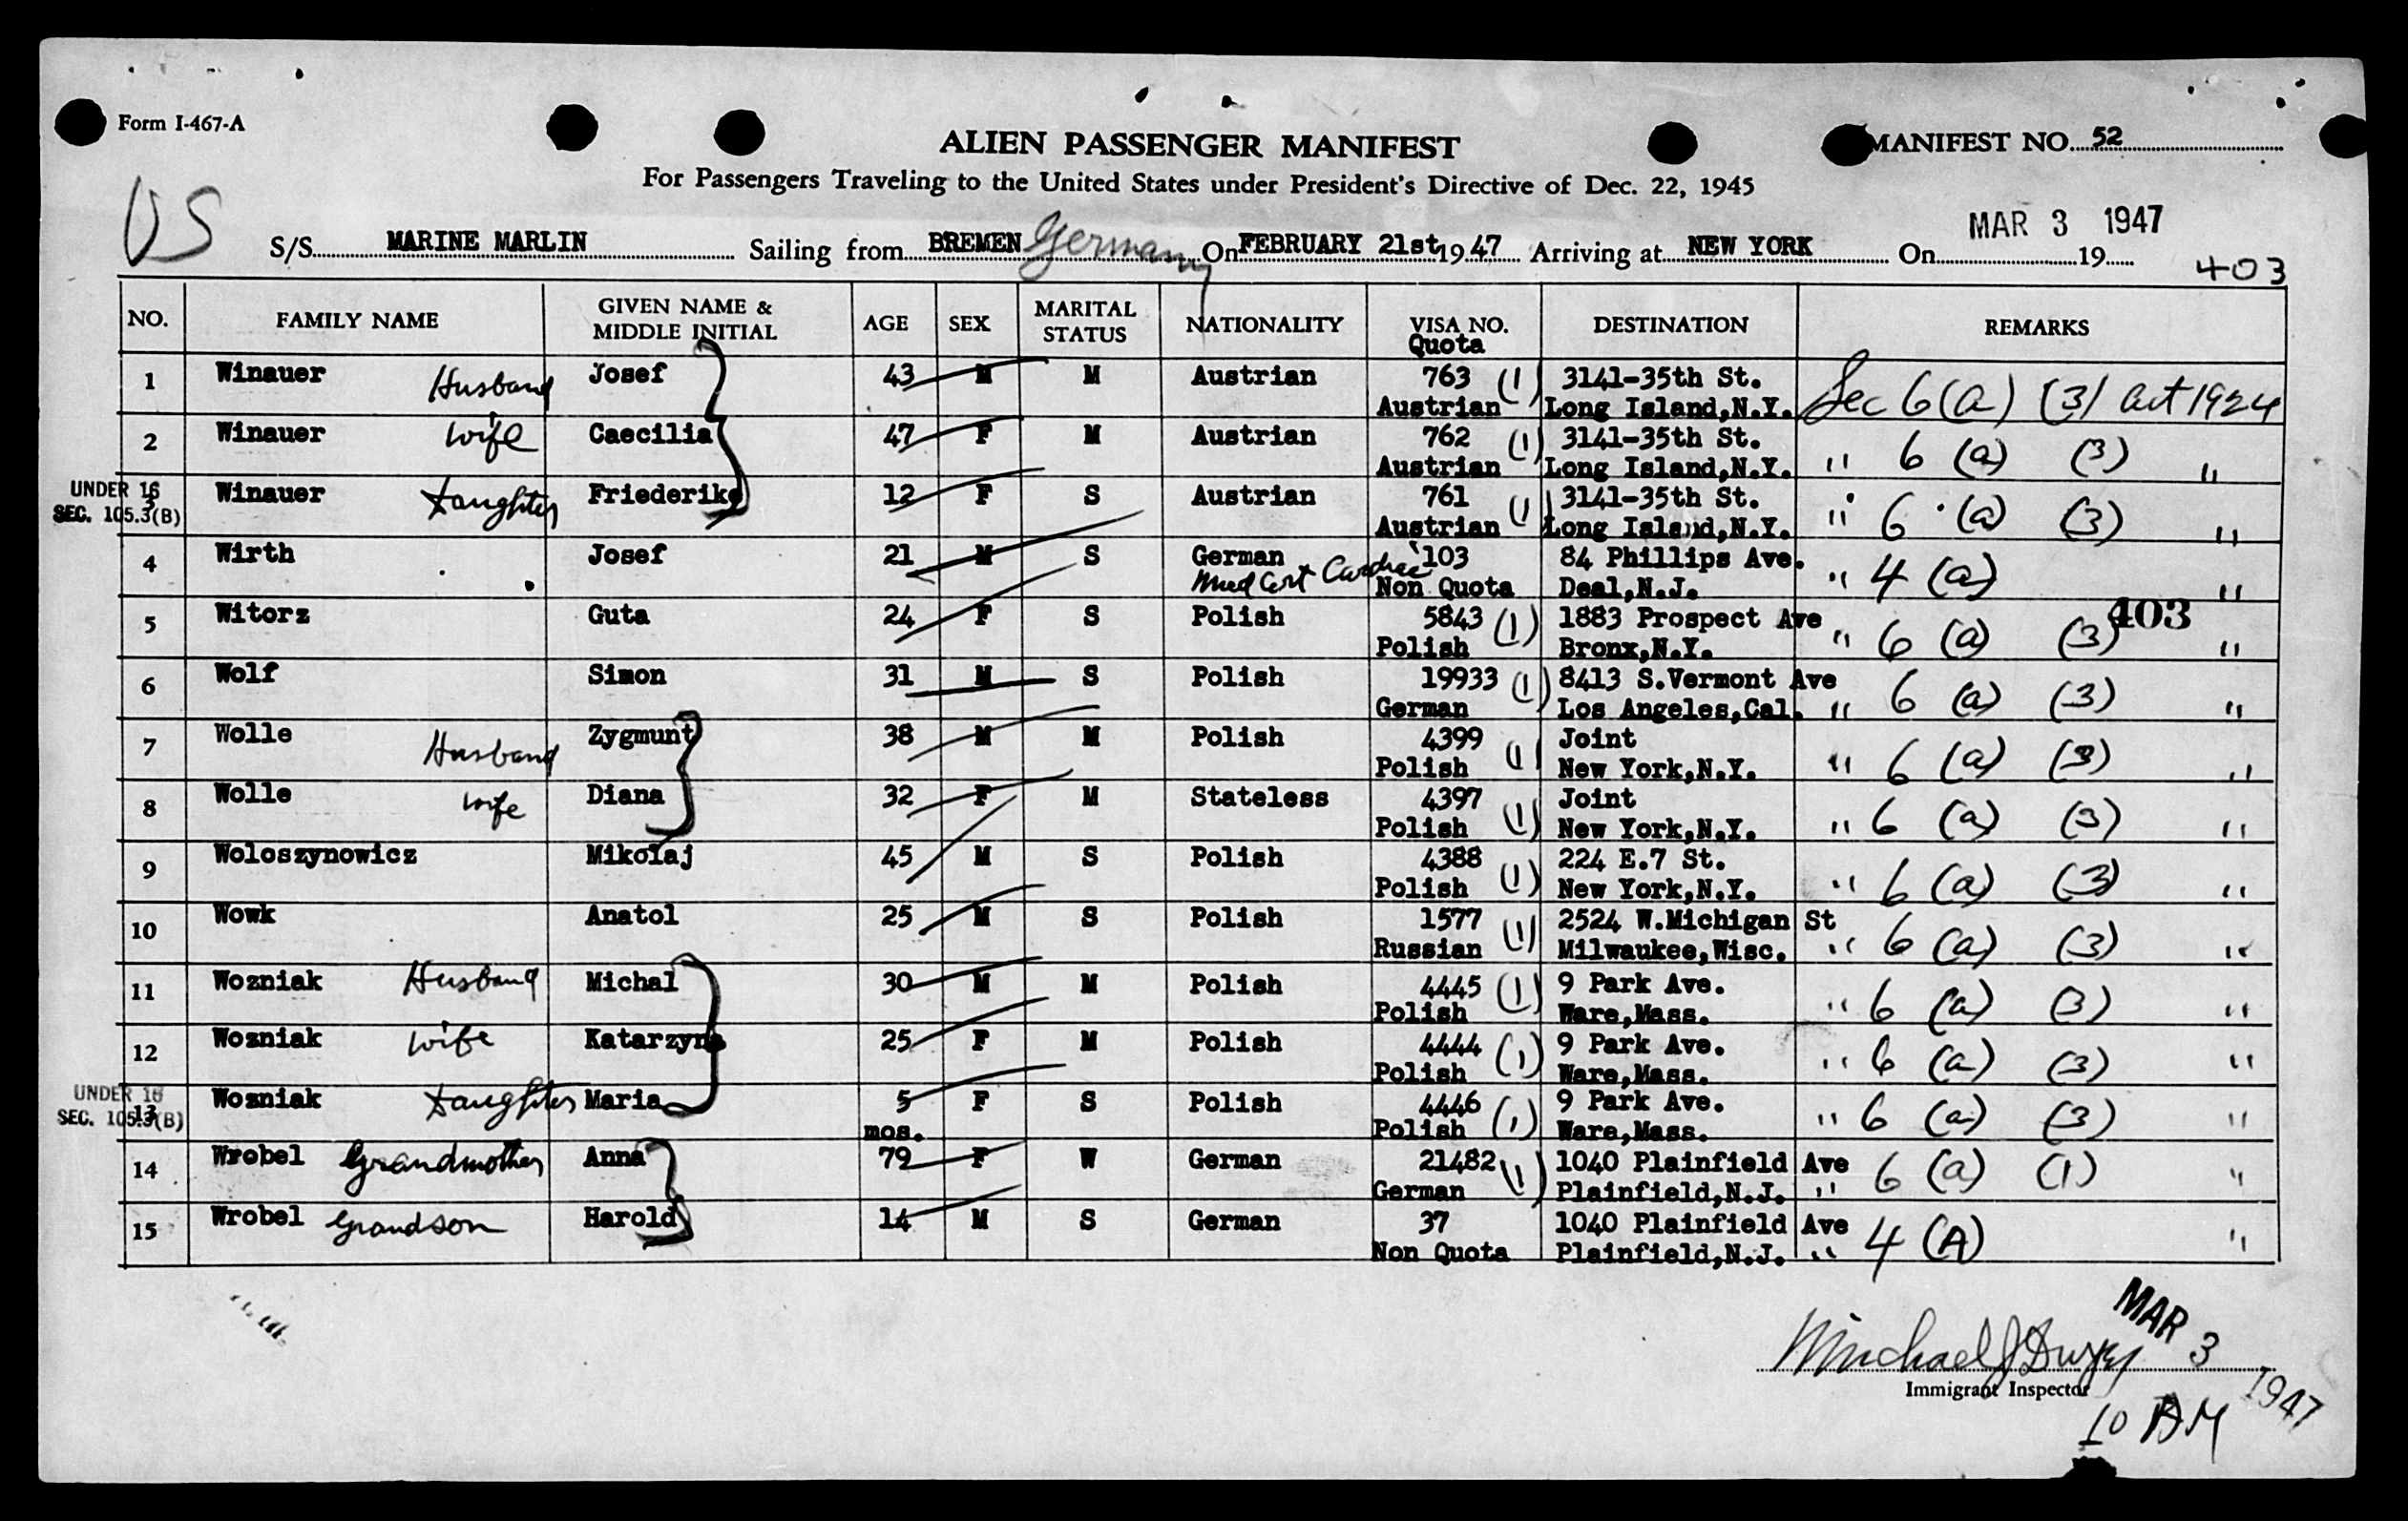 Form I-467-A
ALIEN PASSENGER MANIFEST
MANIFEST NO. 52
For Passengers Traveling to the United States under President's Directive of Dec. 22, 1945
US
MAR 3 1947
S/S MARINE MARLIN Sailing from BREMEN Germany On FEBRUARY 21st 1947 Arriving at NEW YORK On 19
403
NO. FAMILY NAME GIVEN NAME & MIDDLE INITIAL AGE SEX MARITAL STATUS NATIONALITY VISA NO. Quota DESTINATION REMARKS
1 Winauer Husband Josef 43 M M Austrian 763 (1) 3141-35th St.
Austrian Long Island,N.Y. Sec 6(a) (3) act 1924
2 Winauer wife Caecilia 47 F M Austrian 762 (1) 3141-35th St.
Austrian Long Island,N.Y. " 6 (a) (3) "
UNDER 16
SEC. 105.3(B)
3 Winauer daughter Friederike 12 F S Austrian 761 (1) 3141-35th St.
Austrian Long Island,N.Y. " 6 (a) (3) "
4 Wirth Josef 21 M S German 103 84 Phillips Ave.
Med Cert Cardiac Non Quota Deal,N.J. " 4 (a) "
403
5 Witorz Guta 24 F S Polish 5843 (1) 1883 Prospect Ave
Polish Bronx,N.Y. " 6 (a) (3) "
6 Wolf Simon 31 M S Polish 19933 (1) 8413 S.Vermont Ave
German Los Angeles,Cal. " 6 (a) (3) "
7 Wolle Husband Zygmunt 38 M M Polish 4399 (1) Joint
Polish New York,N.Y. " 6 (a) (3) "
8 Wolle wife Diana 32 F M Stateless 4397 (1) Joint
Polish New York,N.Y. " 6 (a) (3) "
9 Woloszynowicz Mikolaj 45 M S Polish 4388 (1) 224 E.7 St.
Polish New York,N.Y. " 6 (a) (3) "
10 Wowk Anatol 25 M S Polish 1577 (1) 2524 W.Michigan St
Russian Milwaukee,Wisc. " 6 (a) (3) "
11 Wozniak Husband Michal 30 M M Polish 4445 (1) 9 Park Ave.
Polish Ware,Mass. " 6 (a) (3) "
12 Wozniak wife Katarzyna 25 F M Polish 4444 (1) 9 Park Ave.
Polish Ware,Mass. " 6 (a) (3) "
UNDER 16
SEC. 105.3(B)
13 Wozniak daughter Maria 5 F S Polish 4446 (1) 9 Park Ave.
mos. Polish Ware,Mass. " 6 (a) (3) "
14 Wrobel Grandmother Anna 79 F W German 21482 (1) 1040 Plainfield Ave
German Plainfield,N.J. " 6 (a) (1) "
15 Wrobel Grandson Harold 14 M S German 37 1040 Plainfield Ave
Non Quota Plainfield,N.J. " 4 (A) "
MAR 3 1947
Michael J Dwyer
Immigrant Inspector
10 AM